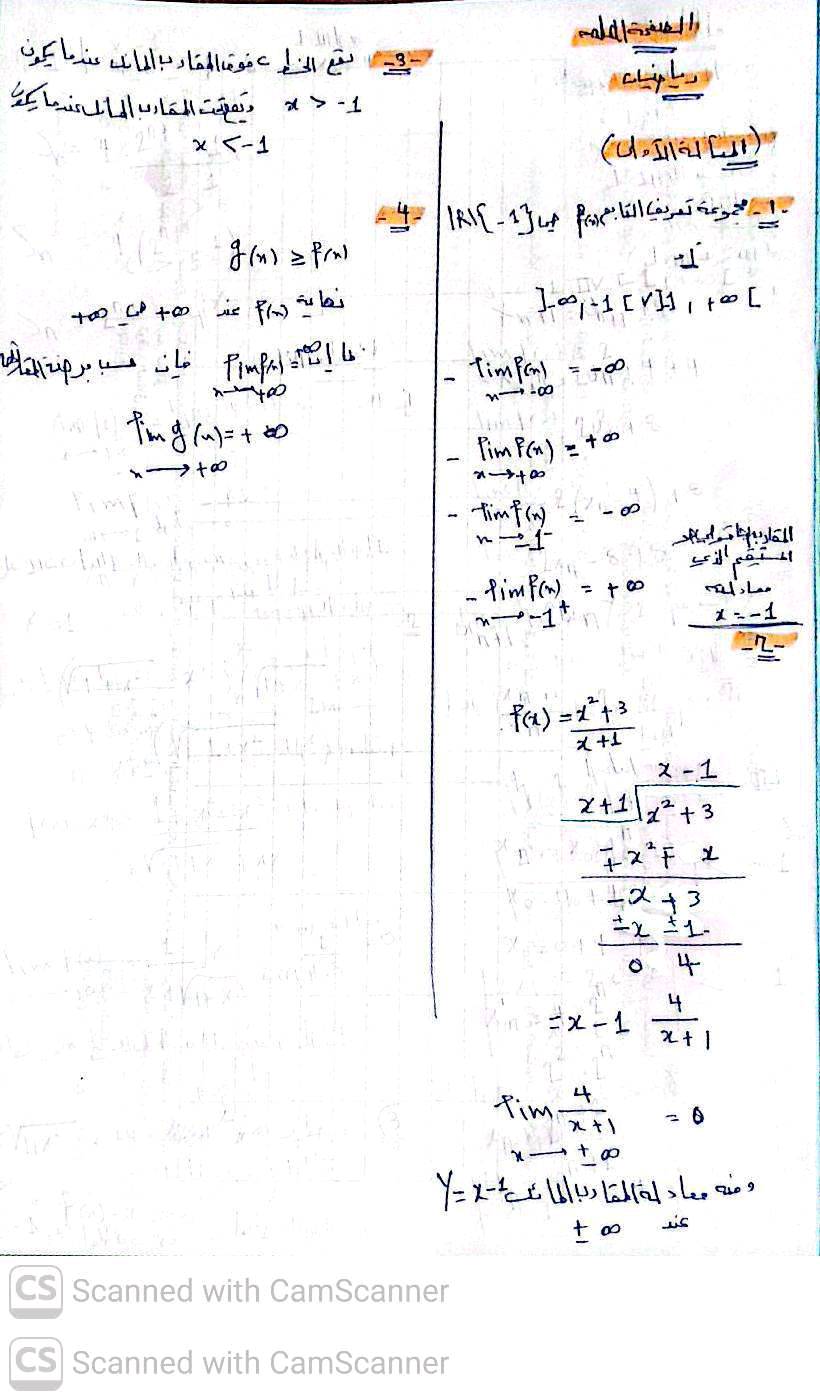 الصفحة
رياضيات
(المسألة الأولى)
-1- مجموعة تعريف التابع f(x) هي IR\{-1}
]-∞, -1 [ ∨ ]1, +∞ [
- lim f(x) = -∞
x → -∞
- lim f(x) = +∞
x → +∞
- lim f(x) = -∞
x → -1⁻
- lim f(x) = +∞
x → -1⁺
المستقيم الذي
معادلته
x = -1
-2-
f(x) = x² + 3
x + 1
x - 1
x + 1 x² + 3
∓ x² ∓ x
- x + 3
± x ± 1
0 4
= x - 1 4
x + 1
lim 4 = 0
x + 1
x → ± ∞
ومنه معادلة المقارب المائل Y = x - 1
عند ± ∞
-3- يقع الخط c فوق المقارب المائل عندما يكون
x > -1 ويقع تحت المقارب المائل عندما يكون
x < -1
-4-
g(x) ≥ f(x)
نهاية f(x) عند +∞ هي +∞
بما أن lim f(x) = +∞ فإن حسب مبرهنة المقارنة
x → +∞
lim g(x) = + ∞
x → +∞
CS Scanned with CamScanner
CS Scanned with CamScanner